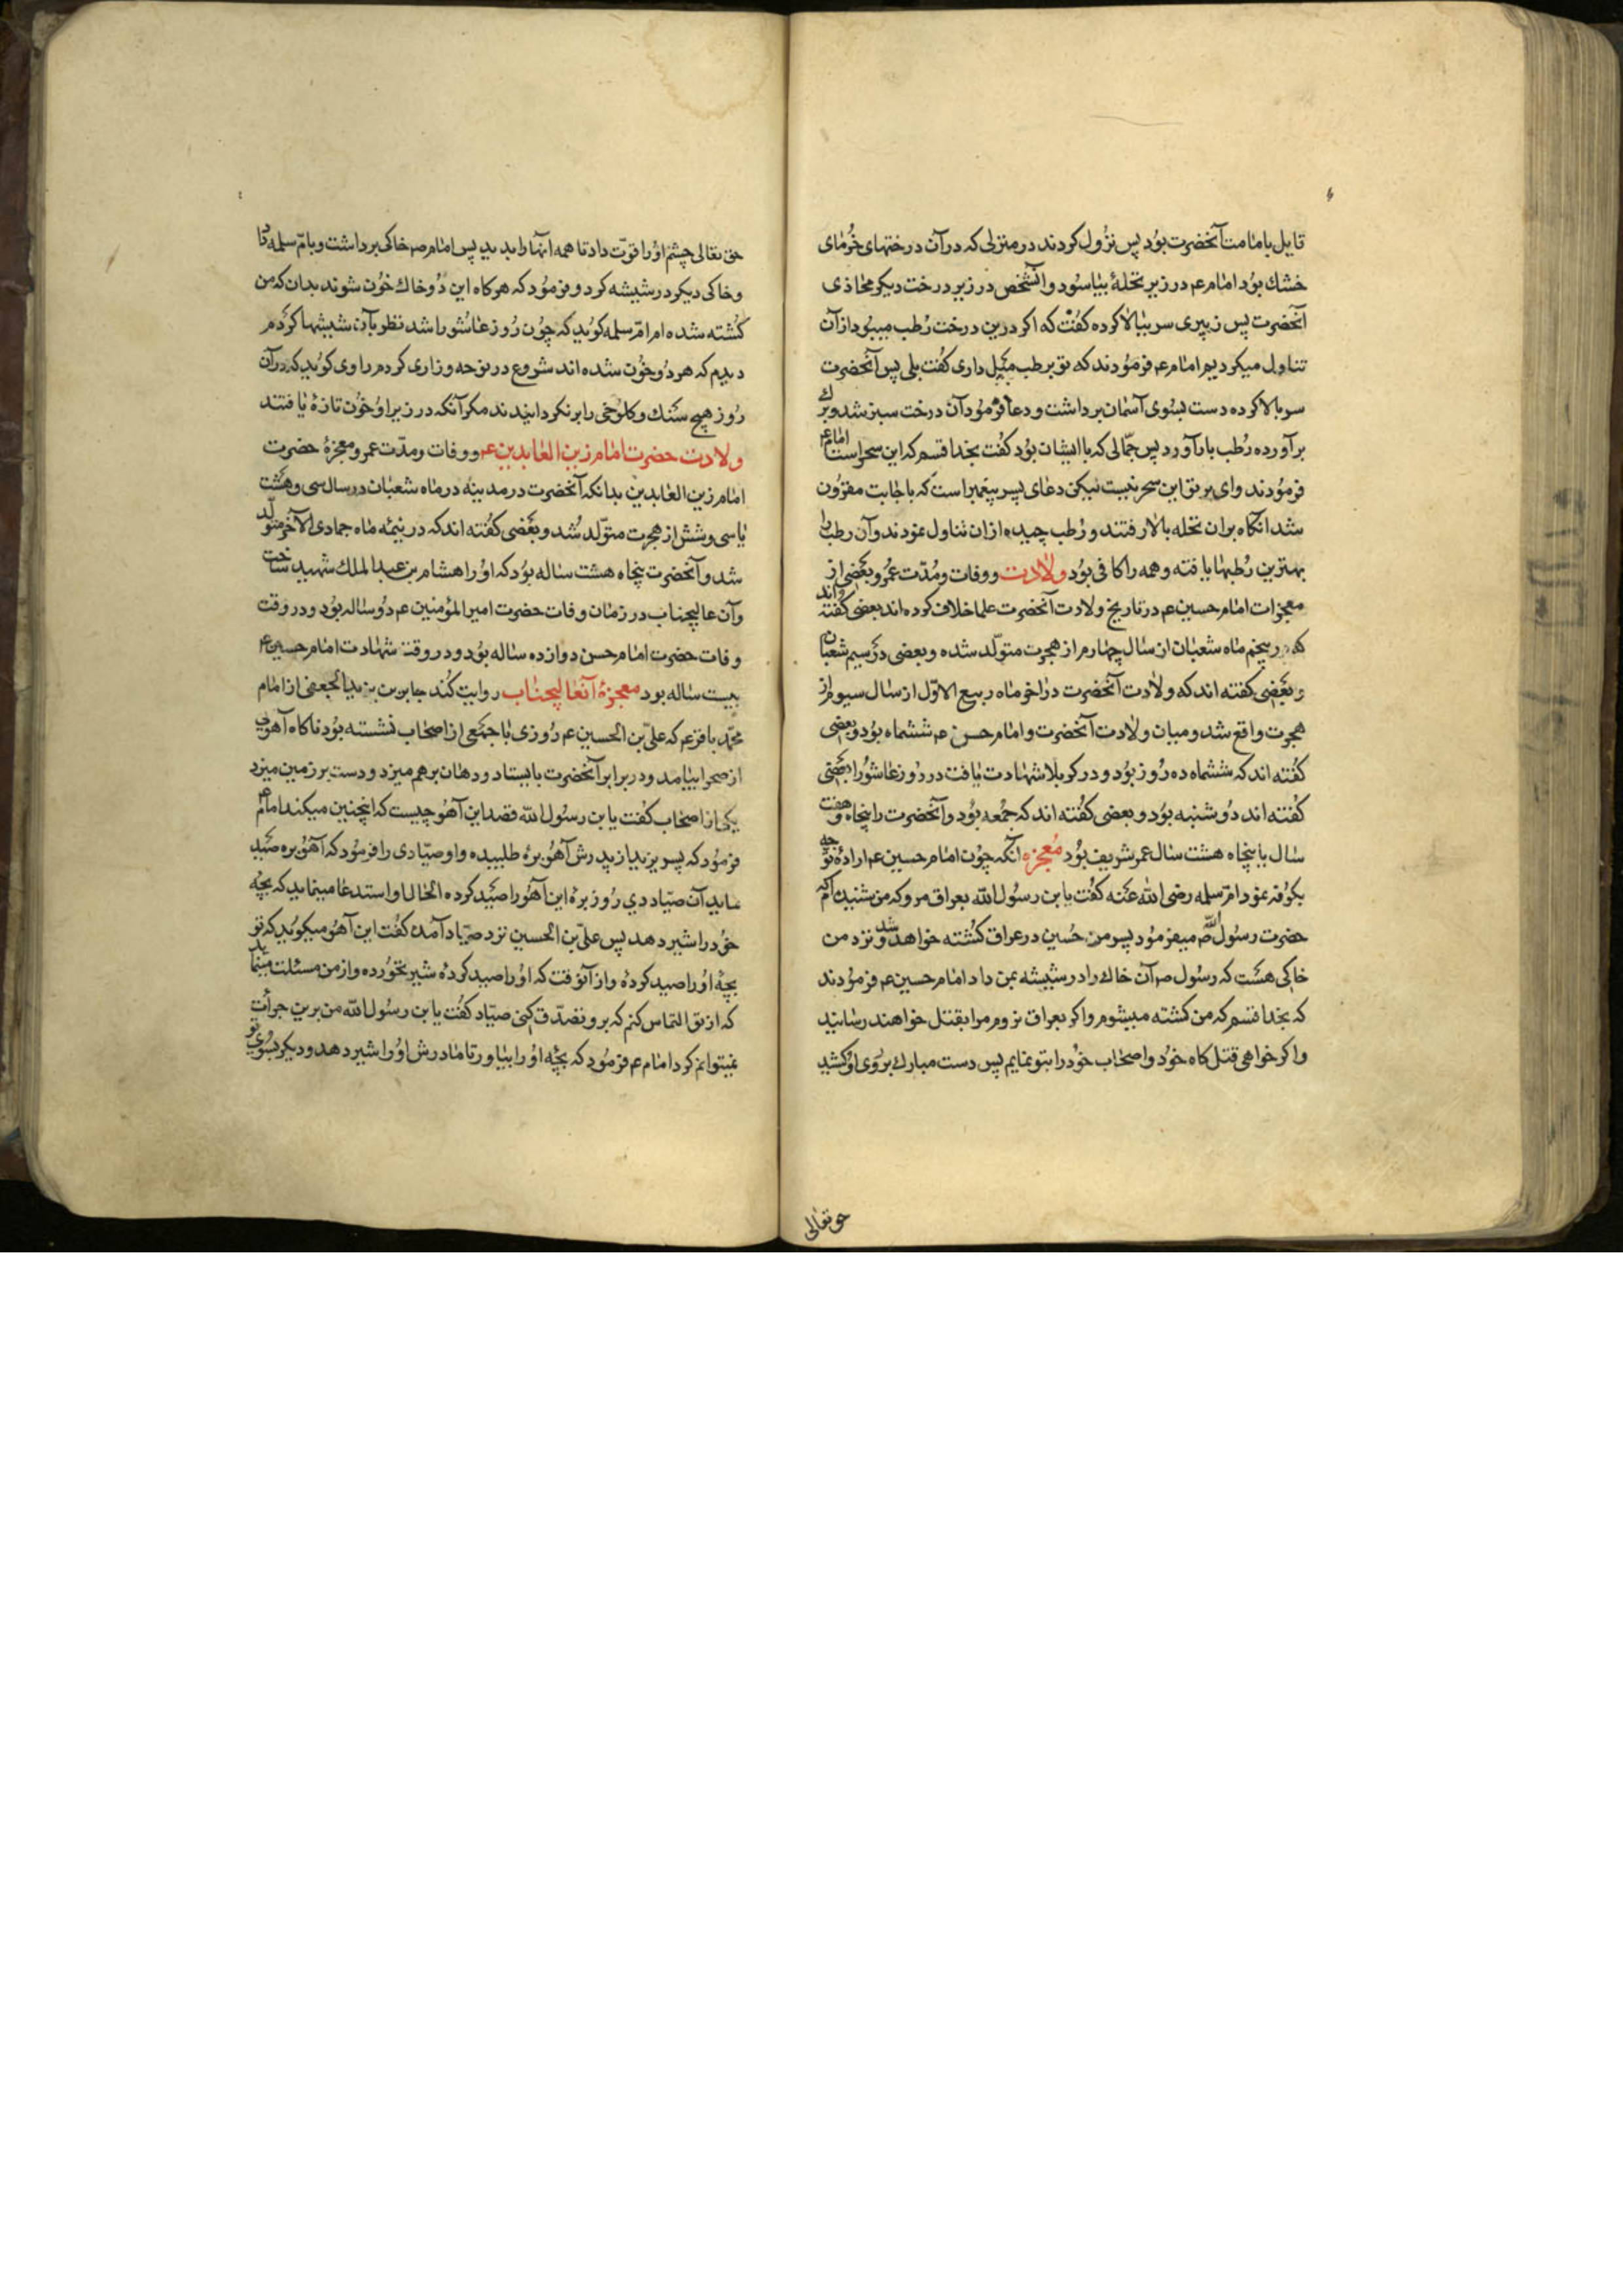 قایل بامامت آنحضرت بود پس نزول کردند در منزلی که در آن درختهای خرمای
خشك بود امام ع در زیر نخلهٔ بیاسود و آنشخص در زیر درخت دیگر محاذی
آنحضرت پس زبیری سر ببالا کرده کفت که اکر درین درخت رطب میبود از آن
تناول میکردیم امام ع فرمودند که تو برطب میل داری کفت بلی پس آنحضرت
سر بالا کرده دست بسوی آسمان برداشت و دعا فرمود آن درخت سبز شد و برك
برآورده رطب بار آورد پس جمّالی که با ایشان بود کفت بخدا قسم که این سحر است امام ع
فرمودند وای بر تو این سحر نیست لیکن دعای پسر پیغمبر است که باجابت مقرون
شد انکاه بران نخله بالا رفتند و رطب چیده ازان تناول نمودند و آن رطب را
بهترین رطبها یافته و همه را کافی بود ولادت و وفات و مدّت عمر و بعضی از
معجزات امام حسین ع در تاریخ ولادت آنحضرت علما خلاف کرده اند بعضی کفته اند
که در پنجم ماه شعبان از سال چهارم از هجرت متولّد شده و بعضی در سیم شعبان
و بعضی کفته اند که ولادت آنحضرت در اخر ماه ربیع الاوّل از سال سیوم از
هجرت واقع شد و میان ولادت آنحضرت و امام حسن ع ششماه بود و بعضی
کفته اند که ششماه ده روز بود و در کربلا شهادت یافت در روز عاشورا بعضی
کفته اند دوشنبه بود و بعضی کفته اند که جمعه بود و آنحضرت را پنجاه و هفت
سال یا پنجاه هشت سال عمر شریف بود معجزه آنکه چون امام حسین ع ارادهٔ توجه
بکوفه نمود ام سلمه رضی الله عنه کفت یابن رسول الله بعراق مرو که من شنیده ام که
حضرت رسول الله ص میفرمود پسر من حسین در عراق کشته خواهد شد و نزد من
خاکی هست که رسول ص آن خاك را در شیشه بمن داد امام حسین ع فرمودند
که بخدا قسم که من کشته میشوم و اکر بعراق نروم مرا بقتل خواهند رسانید
و اکر خواهی قتل کاه خود و اصحاب خود را بتو نمایم پس دست مبارك بر روی او کشید
حق تعالی
حق تعالی چشم او را قوّت داد تا همه آنها را بدید پس امام ص خاکی برداشت و بامّ سلمه داد
و خاکی دیکر در شیشه کرد و فرمود که هرکاه این دو خاك خون شوند بدان که من
کشته شده ام امّ سلمه کوید که چون روز عاشورا شد نظر بآن شیشها کردم
دیدم که هر دو خون شده اند شروع در نوحه و زاری کردم راوی کوید که در آن
روز هیچ سنك و کلوخی را برنکردانیدند مکر آنکه در زیر او خون تازهٔ یافتند
ولادت حضرت امام زین العابدین ع و وفات و مدّت عمر و معجزهٔ حضرت
امام زین العابدین بدانکه آنحضرت در مدینه در ماه شعبان در سال سی و هشت
یا سی و شش از هجرت متولّد شد و بعضی کفته اند که در نیمه ماه جمادی الآخر متولّد
شد و آنحضرت پنجاه هشت ساله بود که او را هشام بن عبد الملك شهید ساخت
و آن عالیجناب در زمان وفات حضرت امیر المؤمنین ع دو ساله بود و در وقت
وفات حضرت امام حسن دوازده ساله بود و در وقت شهادت امام حسین ع
بیست ساله بود معجزهٔ آنعالیجناب روایت کند جابر بن یزید الجعفی از امام
محمّد باقر ع که علیّ بن الحسین ع روزی با جمعی از اصحاب نشسته بود ناکاه آهوی
از صحرا بیامد و در برابر آنحضرت بایستاد و دهان برهم میزد و دست بر زمین میزد
یکی از اصحاب کفت یابن رسول الله قصد این آهو چیست که اینچنین میکند امام ع
فرمود که پسر یزید از پدرش آهو برهٔ طلبیده و او صیّادی را فرمود که آهو بره صید
نماید آن صیّاد دی روز برهٔ این آهو را صید کرده الحال او استدعا مینماید که بچهٔ
خود را شیر دهد پس علیّ بن الحسین نزد صیّاد آمد کفت این آهو میکوید که تو
بچهٔ او را صید کردهٔ و از آنوقت که او را صید کردهٔ شیر نخورده و از من مسئلت مینماید
که از تو التماس کنم که برو تصدّق کنی صیّاد کفت یابن رسول الله من برین جرأت
نمیتوانم کرد امام ع فرمود که بچهٔ او را بیاور تا مادرش او را شیر دهد و دیکر بسوی تو